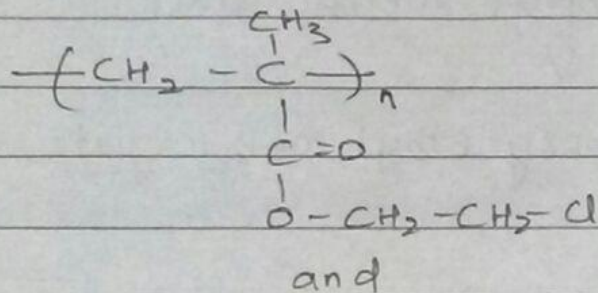 CH3
-(CH2 - C-)n
C=O
O-CH2-CH2-Cl
and